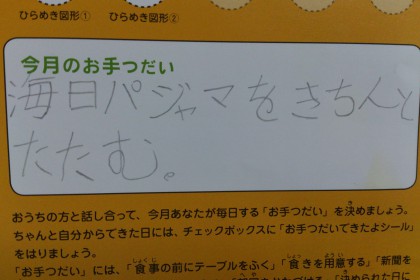 ひらめき図形① ひらめき図形②
今月のお手つだい
海日パジャマをきちんと
たたむ。
おうちの方と話し合って、今月あなたが毎日する「お手つだい」を決めましょう。
ちゃんと自分からできた日には、チェックボックスに「お手つだいできたよシール」
をはりましょう。
「お手つだい」には、「食事の前にテーブルをふく」「食きを用意する」「新聞を